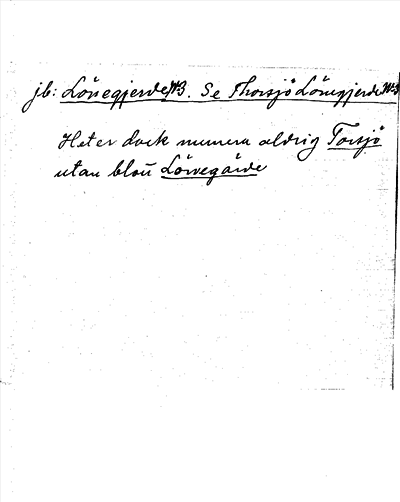 jb: Lönegjerde №3. Se Thorsjö Lönegjerde №3
Heter dock numera aldrig Torsjö
utan blott Lönegärde